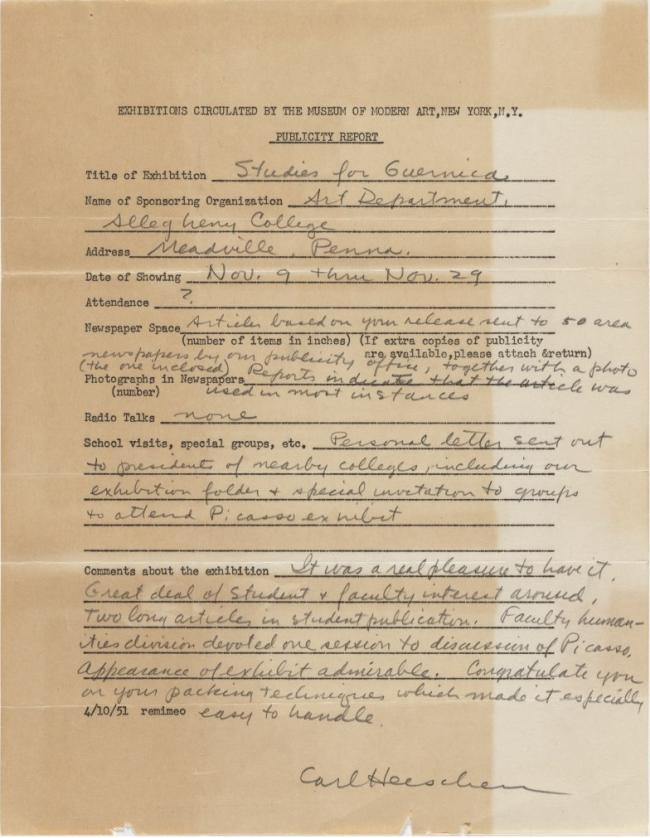 EXHIBITIONS CIRCULATED BY THE MUSEUM OF MODERN ART,NEW YORK,N.Y.
PUBLICITY REPORT
Title of Exhibition Studies for Guernica.
Name of Sponsoring Organization Art Department,
Allegheny College
Address Meadville, Penna.
Date of Showing Nov. 9 thru Nov. 29
Attendance ?
Newspaper Space Articles based on your release sent to 50 area
(number of items in inches) (If extra copies of publicity
newspapers by our publicity office, together with a photo
are available,please attach &return)
(the one inclosed) Reports indicate that the article was
Photographs in Newspapers
(number) used in most instances
Radio Talks none
School visits, special groups, etc. Personal letter sent out
to presidents of nearby colleges, including our
exhibition folder + special invitation to groups
to attend Picasso exhibit
Comments about the exhibition It was a real pleasure to have it.
Great deal of student + faculty interest aroused.
Two long articles in student publication. Faculty human-
ities division devoted one session to discussion of Picasso.
Appearance of exhibit admirable. Congratulate you
on your packing techniques which made it especially
4/10/51 remimeo easy to handle.
Carl Heeschen